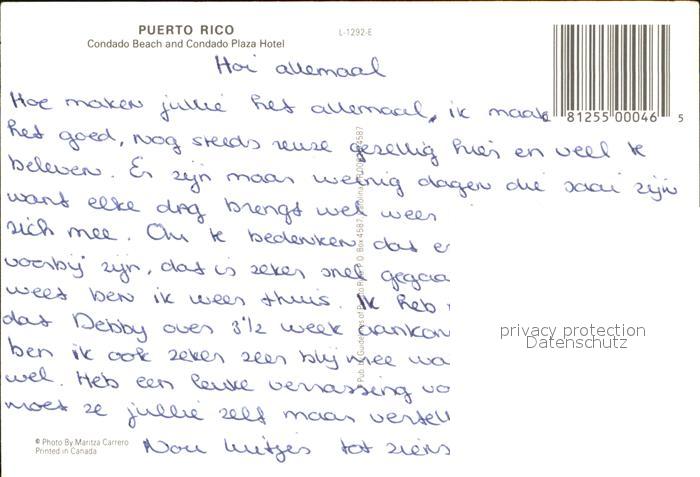 PUERTO RICO
Condado Beach and Condado Plaza Hotel
L-1292-E
Hoi allemaal
Hoe maken jullie het allemaal, ik maak
het goed, nog steeds reuze gezellig hier en veel te
beleven. Er zijn maar weinig dagen die saai zijn
want elke dag brengt wel weer
zich mee. Om te bedenken dat er
voorbij zijn, dat is zeker snel gegaa
weet ben ik weer thuis. Ik heb
dat Debby over 3 1/2 week aankom
ben ik ook zeker zeer blij mee wa
wel. Heb een leuke verrassing vo
moet ze jullie zelf maar vertell
Nou luitjes tot ziens
81255 00046 5
Pub. by Guidelines of Puerto Rico P.O. Box 4587, Carolina,
privacy protection
Datenschutz
© Photo By Maritza Carrero
Printed in Canada